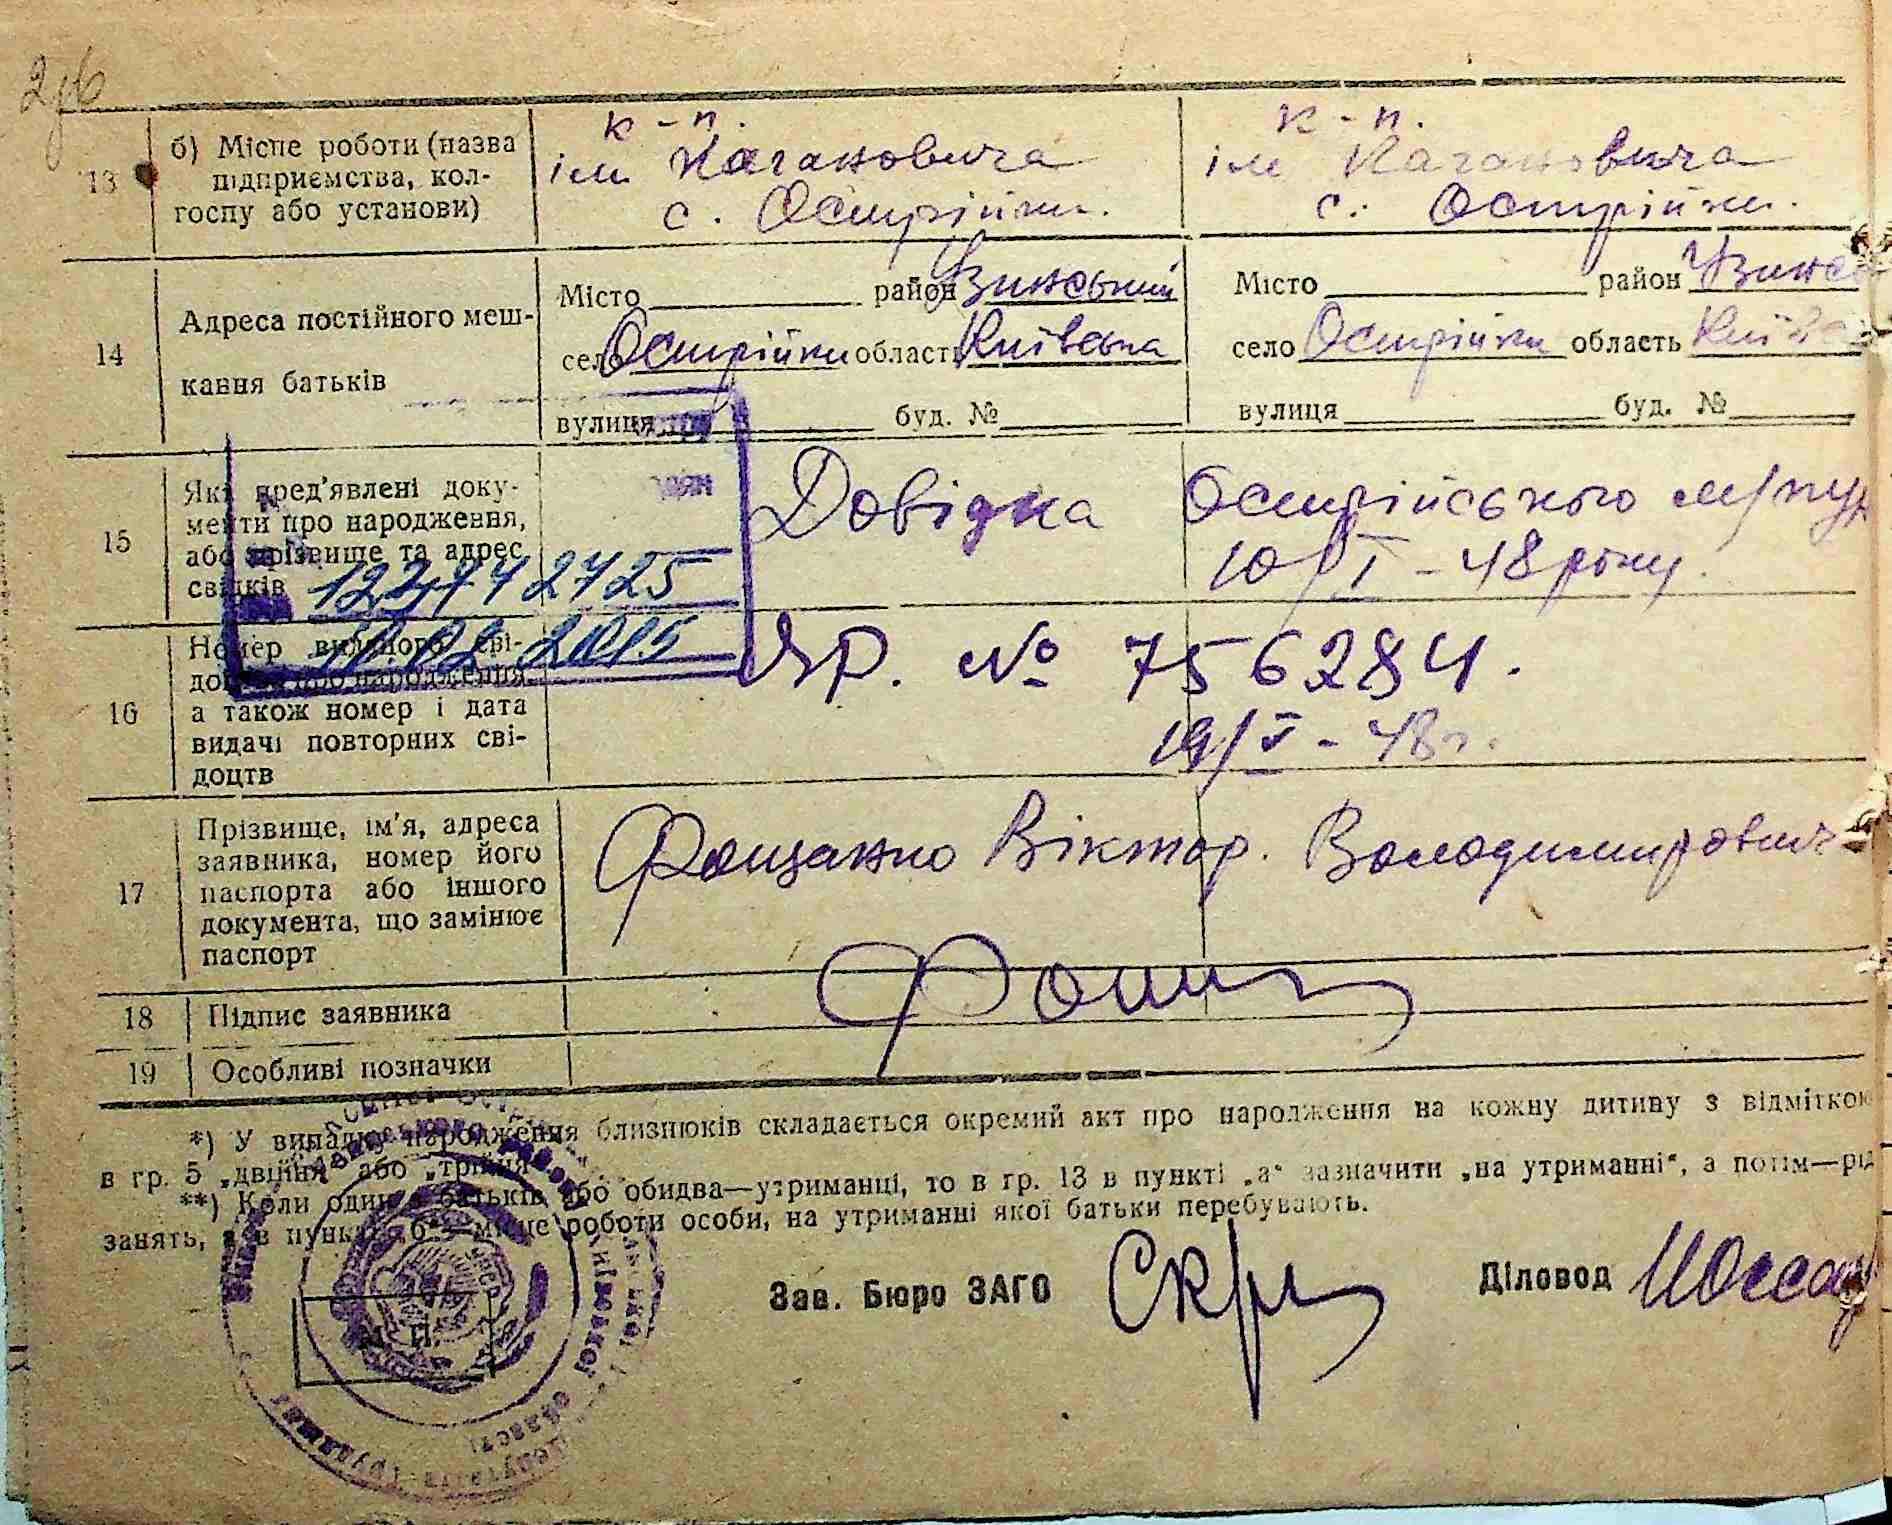 13
б) Місце роботи (назва
підприємства, кол-
госпу або установи)
к-п.
ім Кагановича
с. Острійки.
к-п.
ім Кагановича
с. Острійки.
14
Адреса постійного меш-
кання батьків
Місто район Узинський
село Острійки область Київська
вулиця буд. №
Місто район Узинс
село Острійки область Київс
вулиця буд. №
15
Які пред'явлені доку-
менти про народження,
або прізвище та адрес
свідків
Довідка Острійського
10/I – 48 року.
16
Номер виданого сві-
доцтва про народження,
а також номер і дата
видачі повторних сві-
доцтв
ЯР. № 756284.
19/V – 48 г.
17
Прізвище, ім'я, адреса
заявника, номер його
паспорта або іншого
документа, що замінює
паспорт
Фощанко Віктор. Володимирович
18
Підпис заявника
19
Особливі позначки
*) У випадку народження близнюків складається окремий акт про народження на кожну дитину з відміткою
в гр. 5 „двійня" або „трійня"
**) Коли один з батьків або обидва—утриманці, то в гр. 13 в пункті „а" зазначити „на утриманні", а потім—рід
занять, а в пункті „б"—місце роботи особи, на утриманні якої батьки перебувають.
Зав. Бюро ЗАГС
Діловод
М. П.